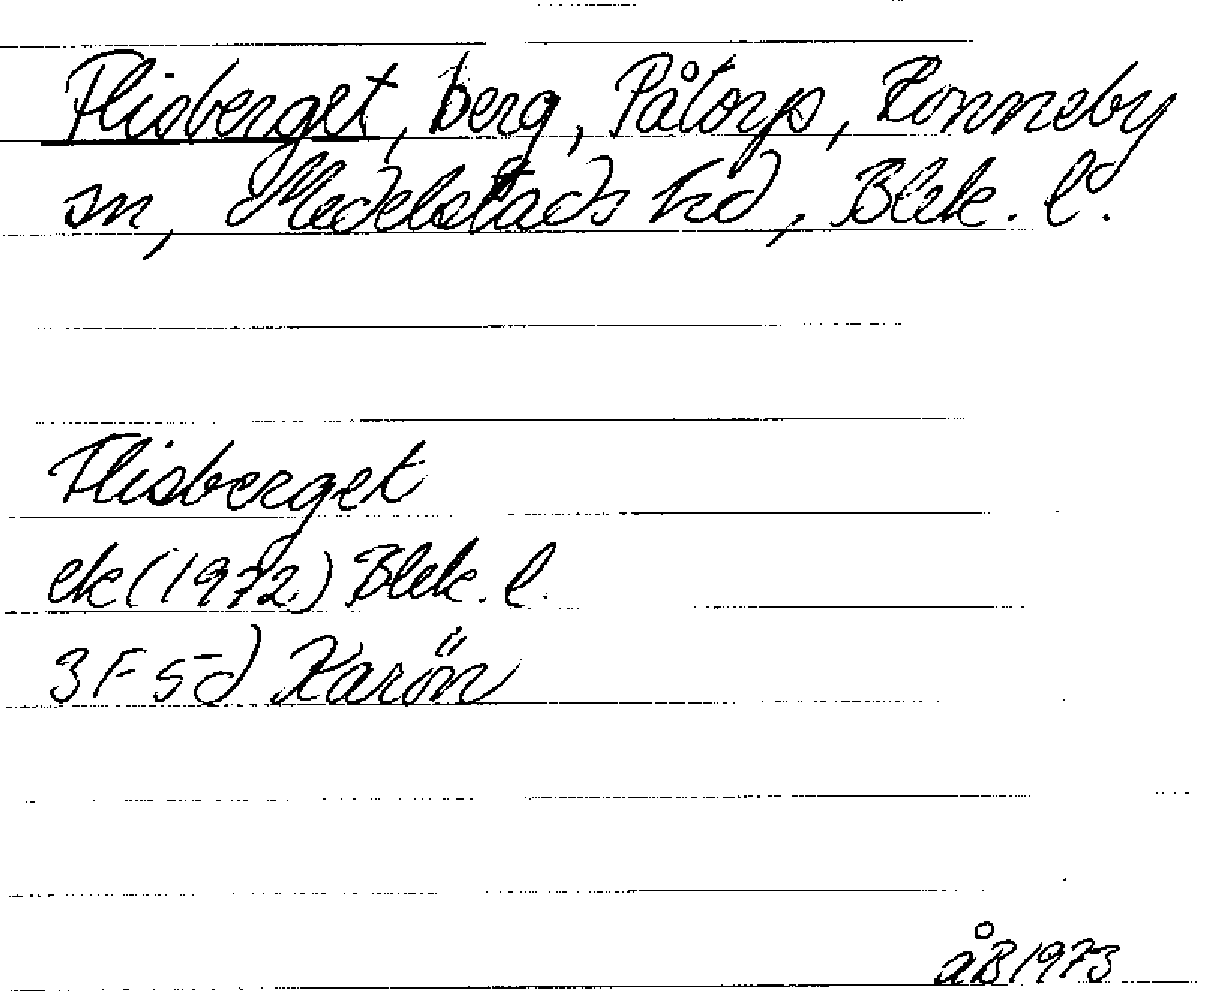 Flisberget, berg, Påtorp, Ronneby
sn, Medelstads hd, Blek. l.
Flisberget
ek (1972) Blek. l.
3F 5d Karön
åB 1973